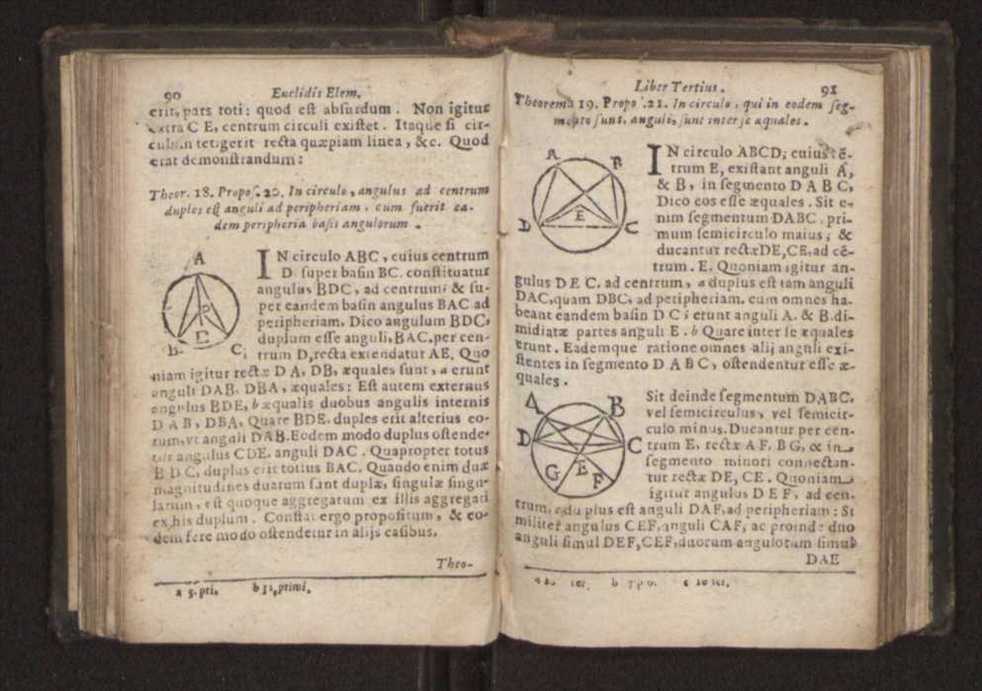 90 Euclidis Elem.
erit, pars toti: quod est absurdum. Non igitur
extra C E, centrum circuli existet. Itaque si cir-
culum tetigerit recta quæpiam linea, &c. Quod
erat demonstrandum:
Theor. 18. Propos. 20. In circulo, angulus ad centrum
duplex est anguli ad peripheriam, cum fuerit ea-
dem peripheria basis angulorum.
A
D
E
B. C;
IN circulo ABC, cuius centrum
D super basin BC. constituatur
angulus BDC, ad centrum: & su-
per eandem basin angulus BAC ad
peripheriam. Dico angulum BDC,
duplum esse anguli, BAC. per cen-
trum D, recta extendatur AE. Quo
niam igitur rectæ D A, DB, æquales sunt, a erunt
anguli DAB. DBA, æquales: Est autem externus
angulus BDE, b æqualis duobus angulis internis
D A B, DBA, Quare BDE. duplex erit alterius eo-
rum, vt anguli DAB. Eodem modo duplus ostende-
tur angulus CDE. anguli DAC. Quapropter totus
B D C, duplus erit totius BAC. Quando enim duæ
magnitudines duarum sunt duplæ, singulæ singu-
larum, est quoque aggregatum ex illis aggregati
ex his duplum. Constat ergo propositum, & eo-
dem fere modo ostendetur in alijs casibus.
Theo-
a 5. pri. b 32. primi.
Liber Tertius. 91
Theorema 19. Propo. 21. In circulo, qui in eodem seg-
mento sunt, anguli, sunt inter se æquales.
A B
E
D C
IN circulo ABCD, cuius cẽ-
trum E, existant anguli A,
& B, in segmento D A B C,
Dico eos esse æquales. Sit e-
nim segmentum DABC. pri-
mum semicirculo maius, &
ducantur rectæ DE, CE, ad cẽ-
trum. E. Quoniam igitur an-
gulus D E C. ad centrum, a duplus est tam anguli
DAC, quam DBC, ad peripheriam, cum omnes ha-
beant eandem basin D C; erunt anguli A. & B. di-
midiatæ partes anguli E. b Quare inter se æquales
erunt. Eademque ratione omnes alij anguli exi-
stentes in segmento D A B C, ostendentur esse æ-
quales.
A B
D C
E
G F
Sit deinde segmentum DABC.
vel semicirculus, vel semicir-
culo minus. Ducantur per cen-
trum E, rectæ A F, B G, & in
segmento minori connectan-
tur rectæ DE, CE. Quoniam
igitur angulus D E F, ad cen-
trum, c duplus est anguli DAF, ad peripheriam: Si
militer angulus CEF, anguli CAF, ac proinde duo
anguli simul DEF, CEF, duorum angulorum simul
DAE